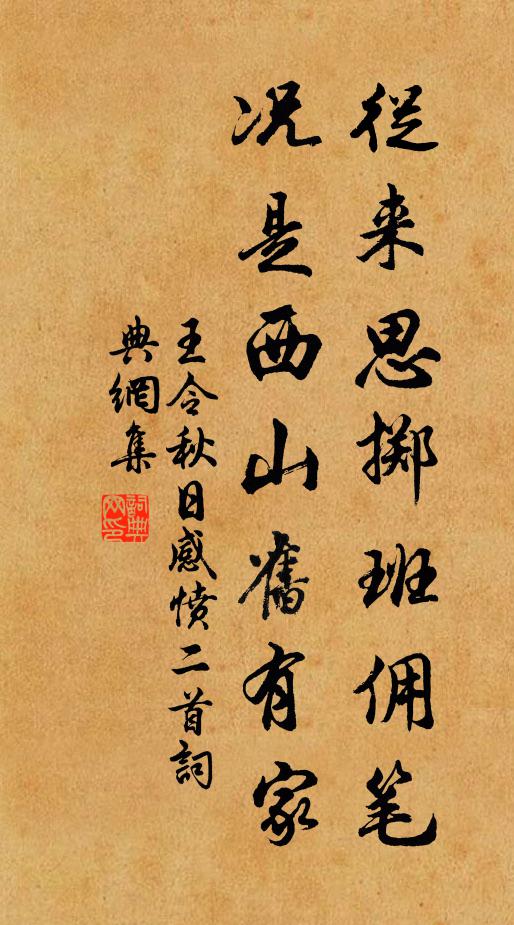 從来思擲班佣笔
况是西山舊有家
王令秋日感憤二首詞
典網集
詞典网印